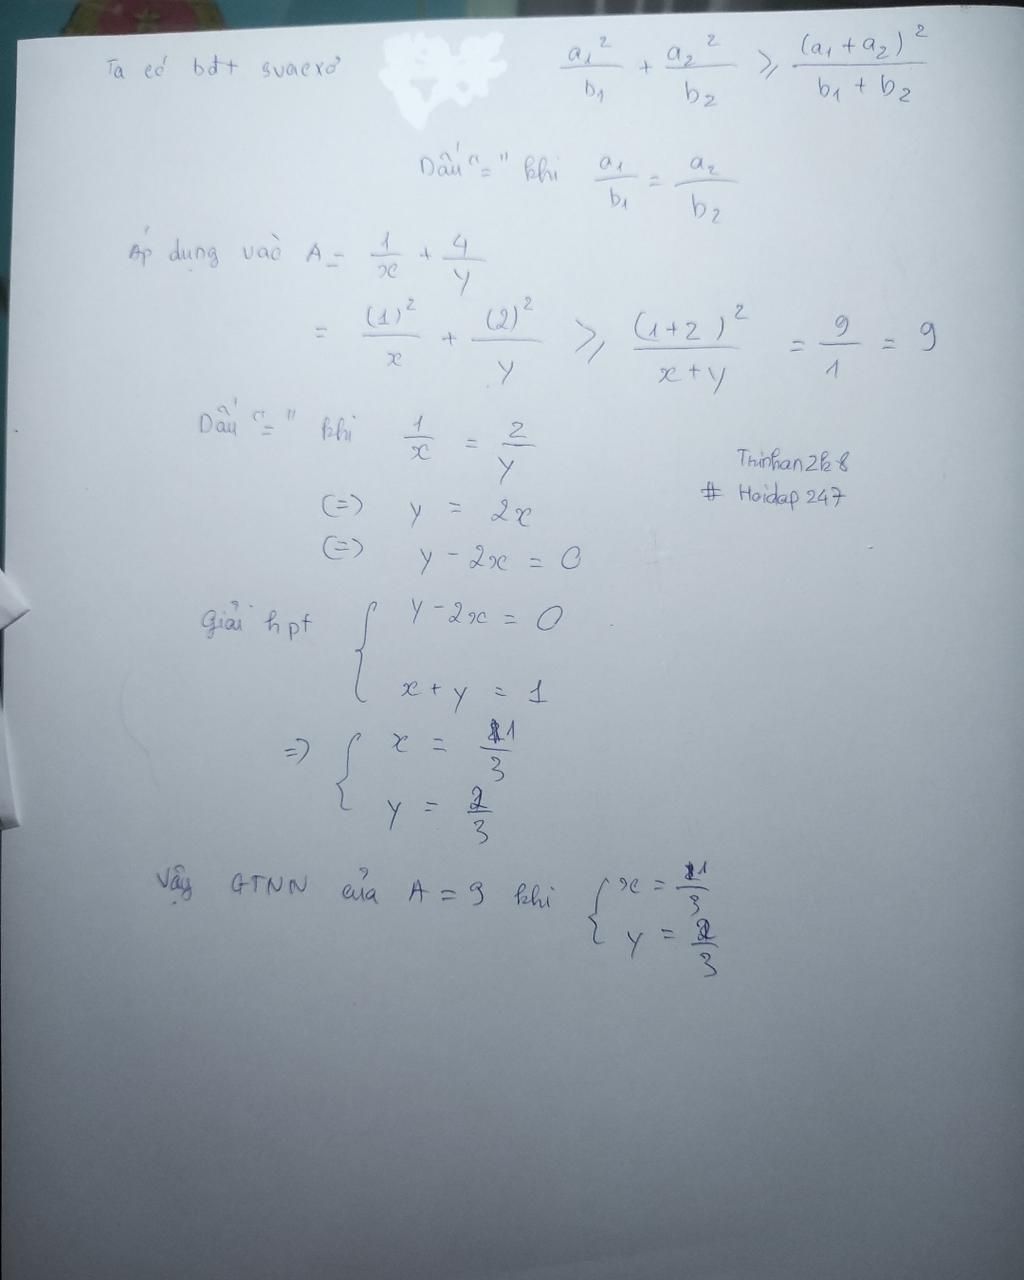 Ta có bđt svacxơ a₁²/b₁ + a₂²/b₂ ⩾ (a₁ + a₂)²/(b₁ + b₂)
Dấu "=" khi a₁/b₁ = a₂/b₂
Áp dụng vào A = 1/x + 4/y
= (1)²/x + (2)²/y ⩾ (1+2)²/(x+y) = 9/1 = 9
Dấu "=" khi 1/x = 2/y
(=) y = 2x
(=) y - 2x = 0
Thinhan2k8
# Hoidap247
Giải hpt { y - 2x = 0
x + y = 1
=) { x = 1/3
y = 2/3
Vậy GTNN của A = 9 khi { x = 1/3
y = 2/3